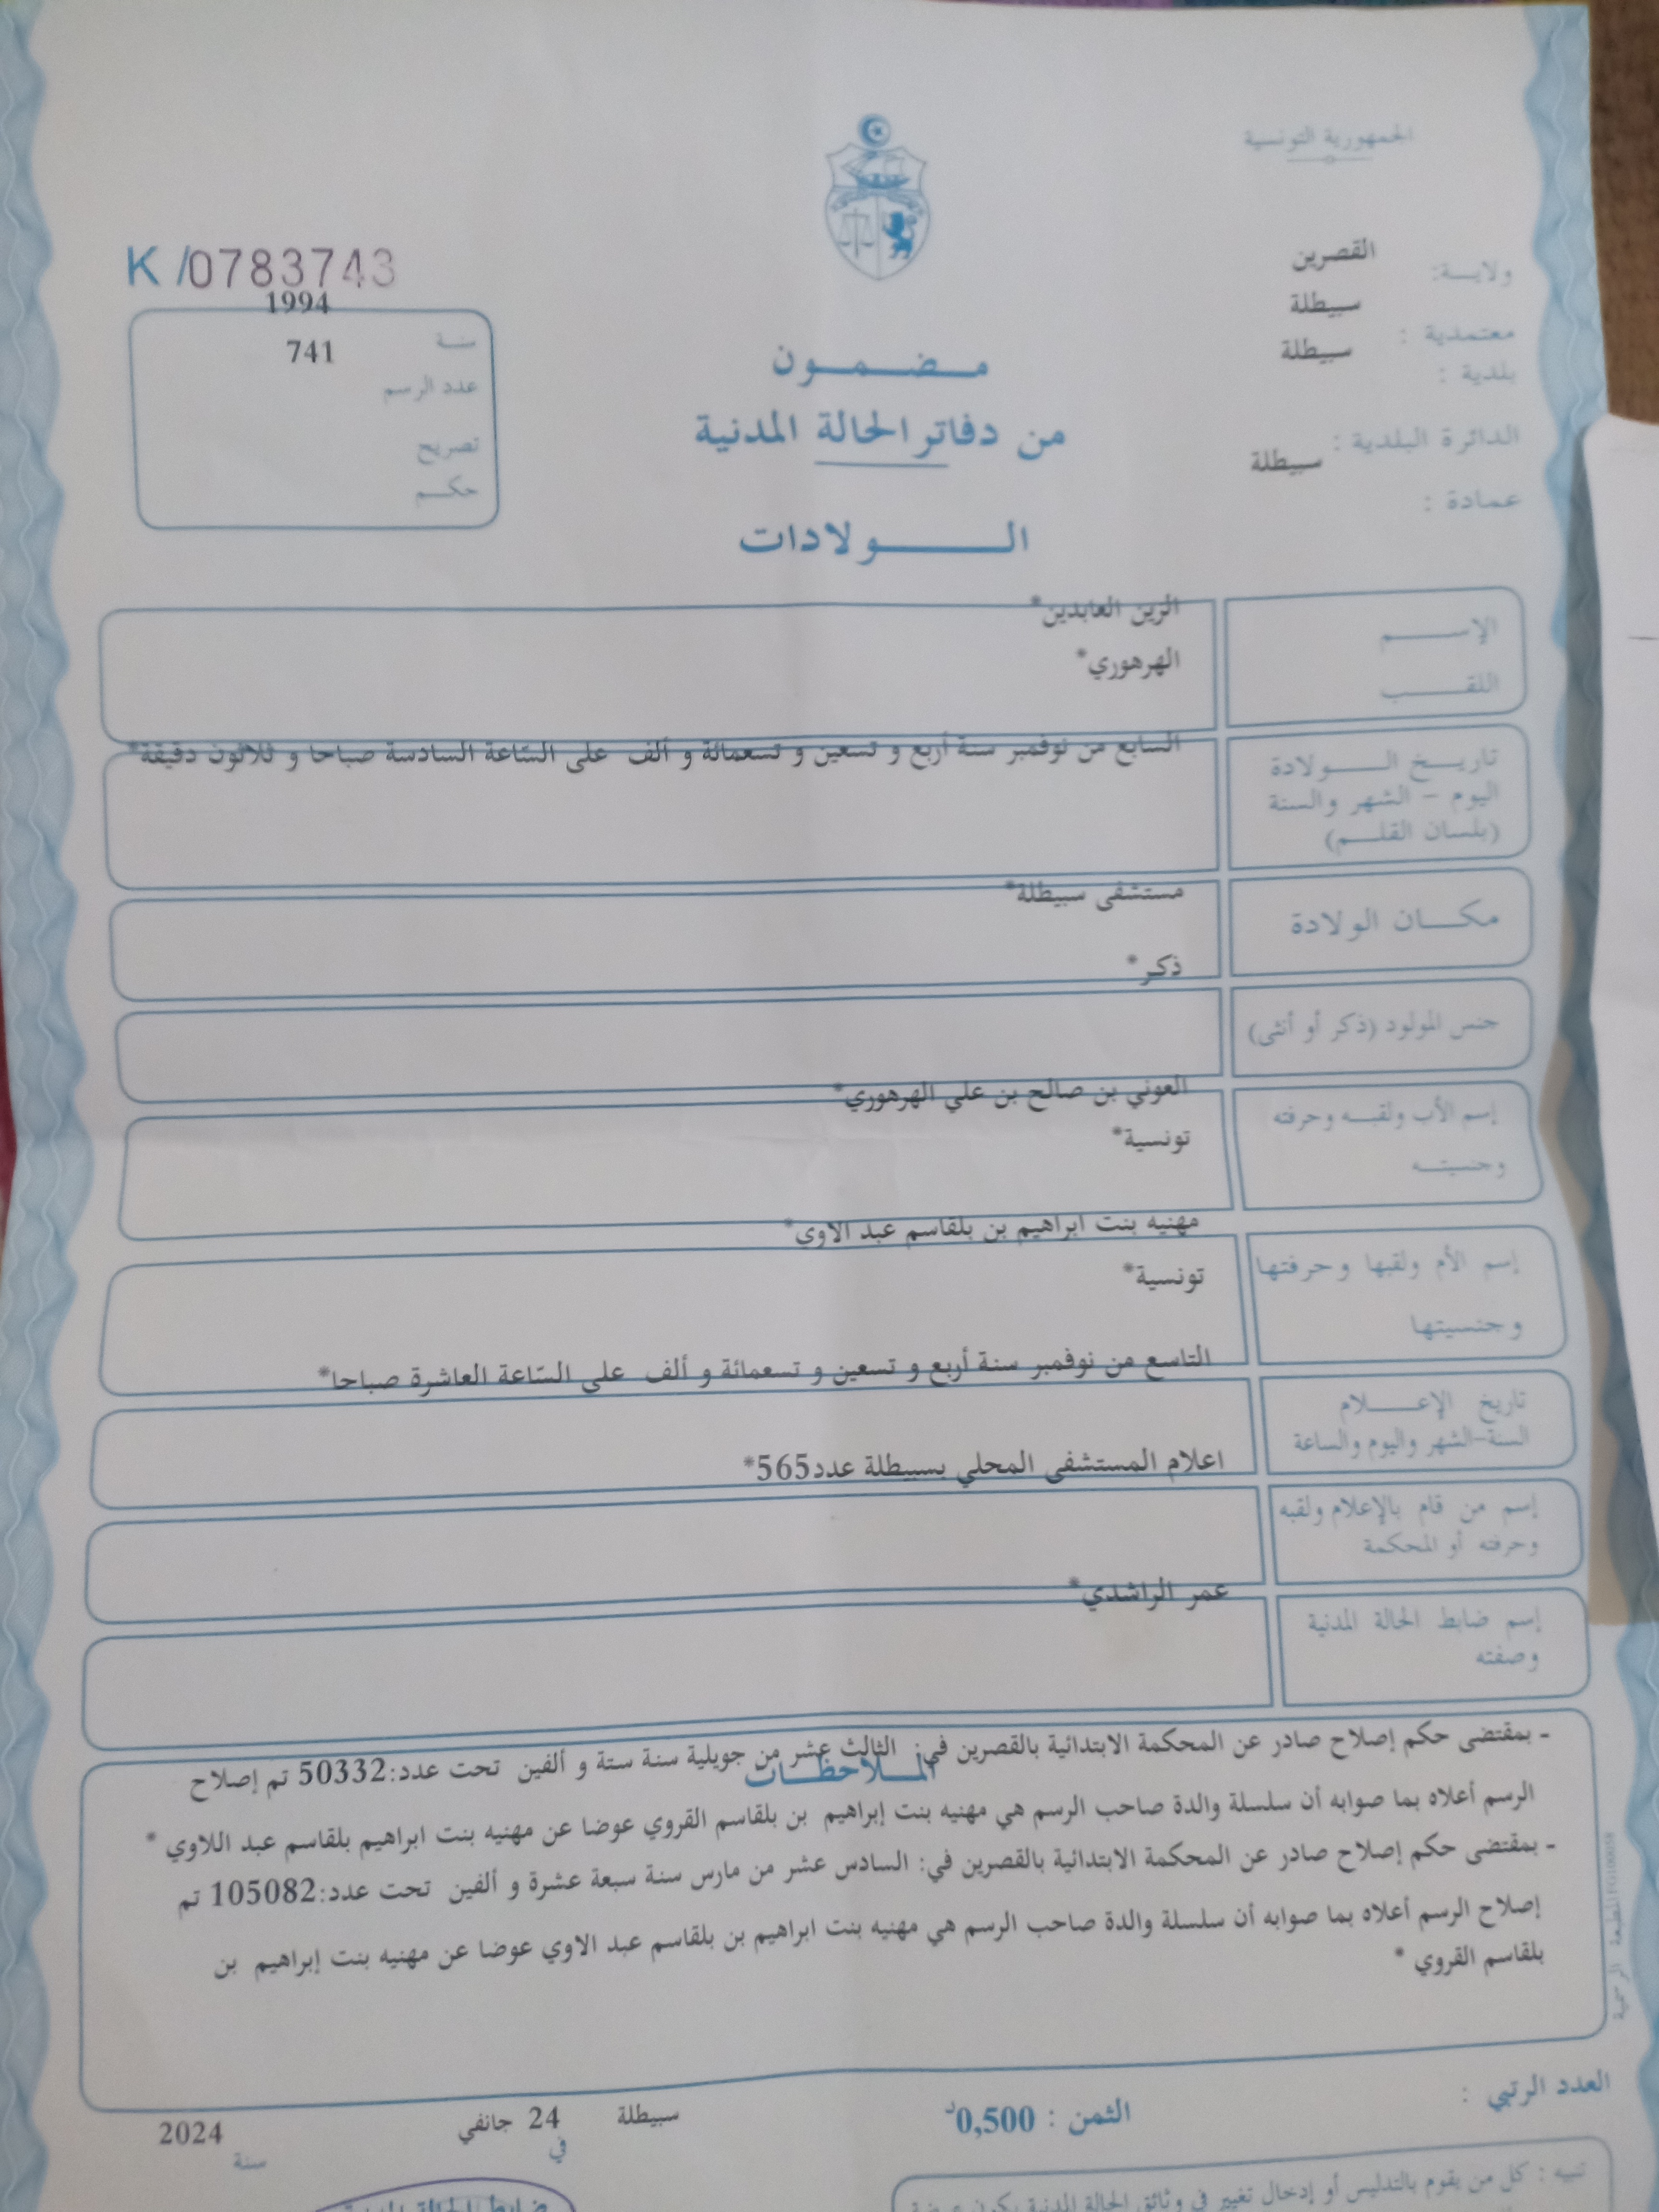 الجمهورية التونسية
ولايـة: القصرين
معتمدية : سبيطلة
بلدية : سبيطلة
الدائرة البلدية : سبيطلة
عمادة :
K /0783743
سنـة 1994
عدد الرسم 741
تصريح
حكـم
مـضـمـون
من دفاتر الحالة المدنية
الـولادات
الإسـم الزين العابدين*
اللقـب الهرهوري*
تاريـخ الـولادة
اليوم - الشهر والسنة
(بلسان القلـم)
السابع من نوفمبر سنة أربع و تسعين و تسعمائة و ألف على السّاعة السادسة صباحا و ثلاثون دقيقة*
مكـان الولادة مستشفى سبيطلة*
جنس المولود (ذكر أو أنثى) ذكر*
إسم الأب ولقبـه وحرفته العوني بن صالح بن علي الهرهوري*
وجنسيتـه تونسية*
إسم الأم ولقبها وحرفتها مهنيه بنت ابراهيم بن بلقاسم عبد الاوي*
وجنسيتها تونسية*
تاريخ الإعـلام
السنة-الشهر واليوم والساعة
التاسع من نوفمبر سنة أربع و تسعين و تسعمائة و ألف على السّاعة العاشرة صباحا*
إسم من قام بالإعلام ولقبه
وحرفته أو المحكمة
اعلام المستشفى المحلي بسبيطلة عدد565*
إسم ضابط الحالة المدنية
وصفته
عمر الراشدي*
الملاحظـات
- بمقتضى حكم إصلاح صادر عن المحكمة الابتدائية بالقصرين في: الثالث عشر من جويلية سنة ستة و ألفين تحت عدد:50332 تم إصلاح
الرسم أعلاه بما صوابه أن سلسلة والدة صاحب الرسم هي مهنيه بنت إبراهيم بن بلقاسم القروي عوضا عن مهنيه بنت ابراهيم بلقاسم عبد اللاوي *
- بمقتضى حكم إصلاح صادر عن المحكمة الابتدائية بالقصرين في: السادس عشر من مارس سنة سبعة عشرة و ألفين تحت عدد:105082 تم
إصلاح الرسم أعلاه بما صوابه أن سلسلة والدة صاحب الرسم هي مهنيه بنت ابراهيم بن بلقاسم عبد الاوي عوضا عن مهنيه بنت إبراهيم بن
بلقاسم القروي *
المطبعة الرسمية
العدد الرتبي :
الثمن : 0,500د
سبيطلة في 24 جانفي سنة 2024
تنبيه : كل من يقوم بالتدليس أو إدخال تغيير في وثائق الحالة المدنية يكون عرضة
ضابط الحالة المدنية